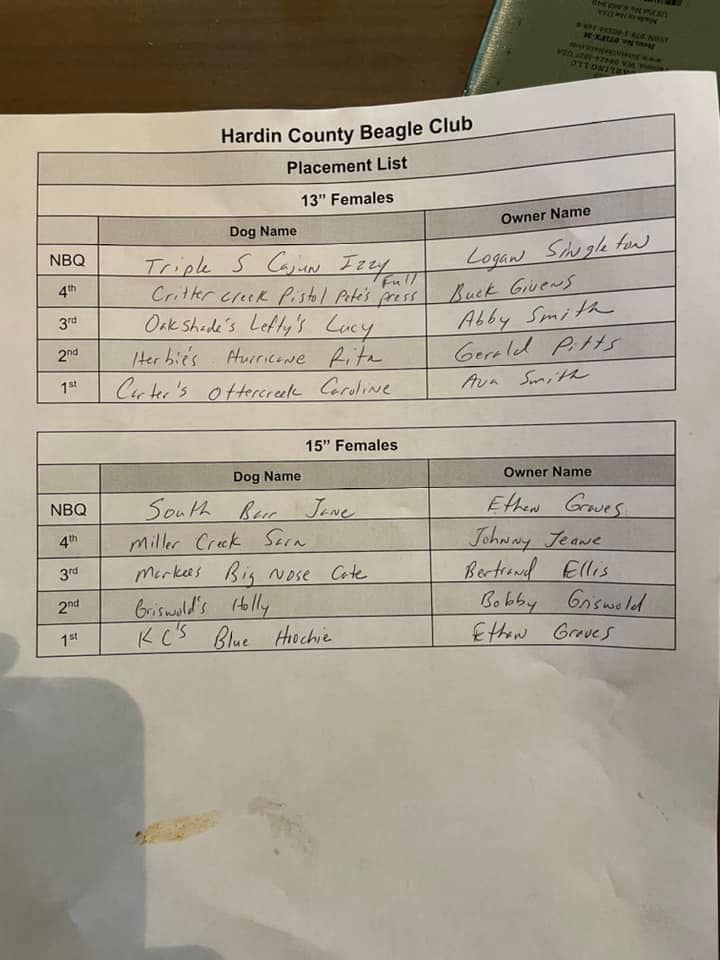 Made in the USA
Hardin County Beagle Club
Placement List
13” Females
Dog Name Owner Name
NBQ Triple S Cajun Izzy Logan Singleton
4th Critter Creek Pistol Pete's Full press Buck Givens
3rd Oakshade's Lefty's Lucy Abby Smith
2nd Herbie's Hurricane Rita Gerald Pitts
1st Carter's Ottercreek Caroline Ava Smith
15” Females
Dog Name Owner Name
NBQ South Barr Jane Ethan Graves
4th Miller Creek Sara Johnny Jeane
3rd Markees Big Nose Cate Bertrand Ellis
2nd Griswold's Holly Bobby Griswold
1st KC's Blue Hoochie Ethan Graves